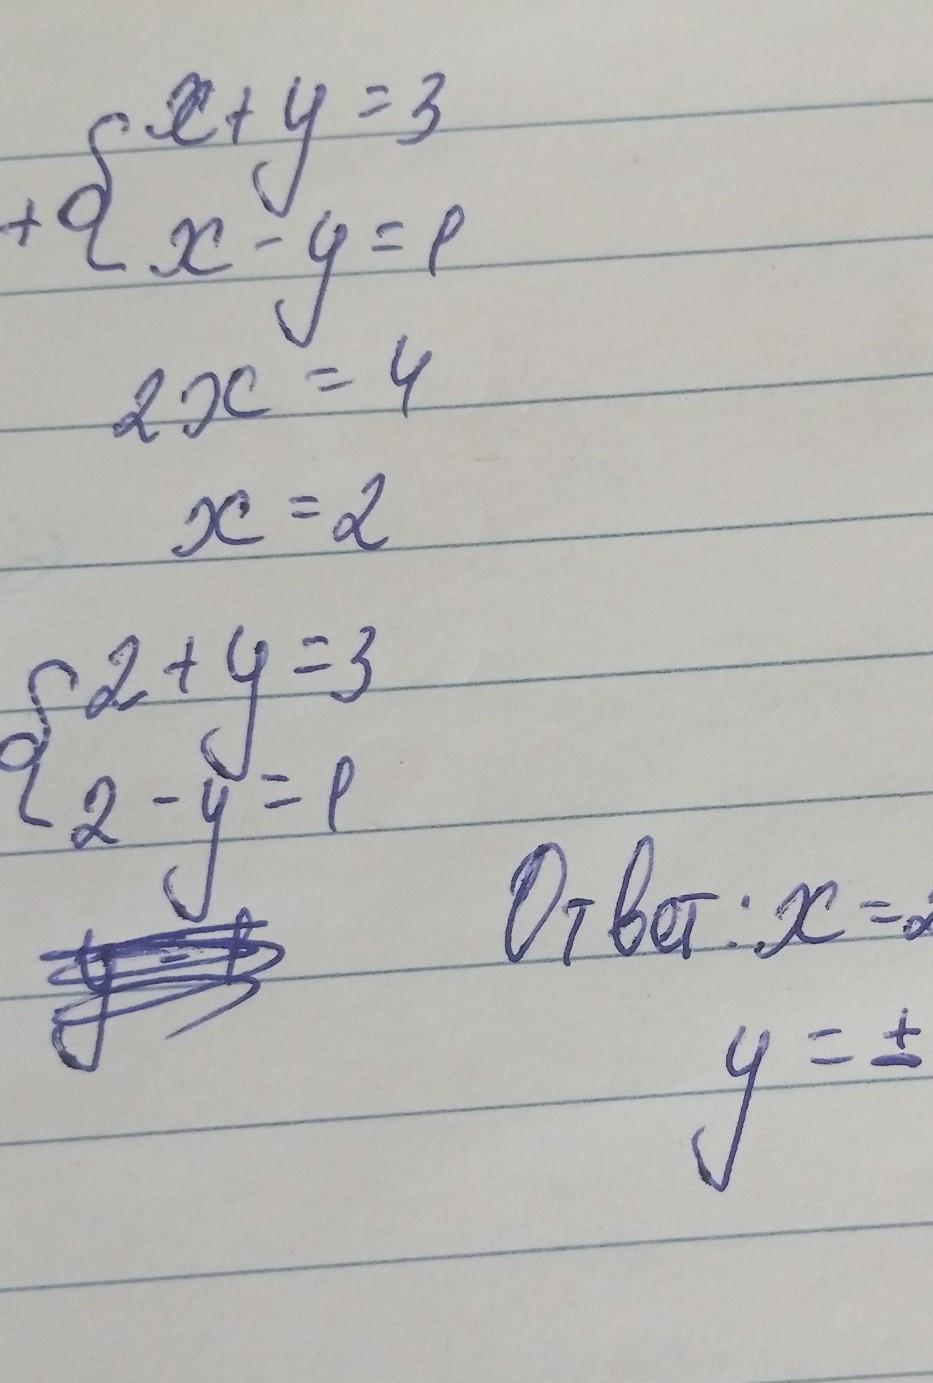 x + y = 3
+ { x - y = 1
2x = 4
x = 2
{ 2 + y = 3
2 - y = 1
Ответ: x = 2
y = ±